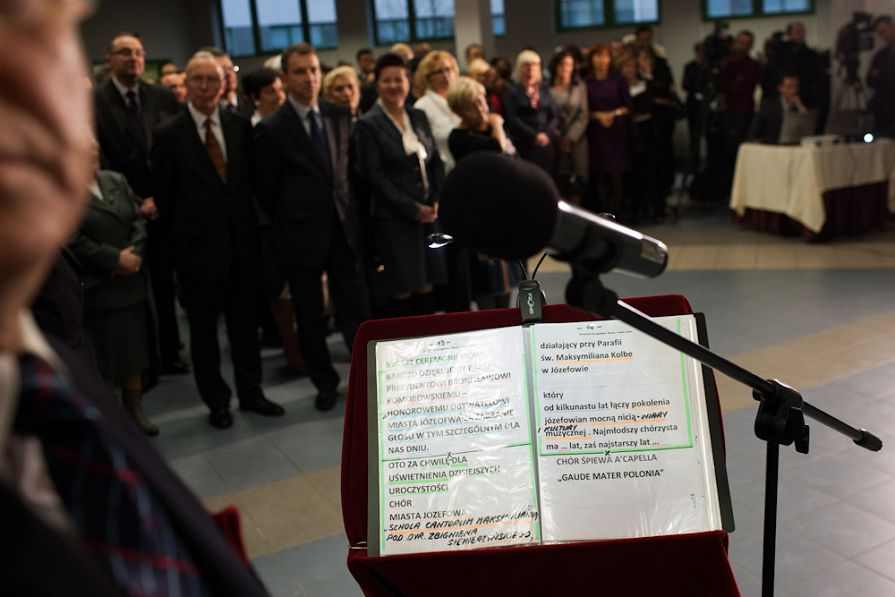 - 13 -
MISTRZ CEREMONII MÓWI:
BARDZO DZIĘKUJĘ PANU
PREZYDENTOWI BRONISŁAWOWI
KOMOROWSKIEMU –
„HONOROWEMU OBYWATELOWI
MIASTA JÓZEFOWA” ZA ZABRANIE
GŁOSU W TYM SZCZEGÓLNYM DLA
NAS DNIU.
OTO ZA CHWILĘ DLA
UŚWIETNIENIA DZISIEJSZYCH
UROCZYSTOŚCI
CHÓR
MIASTA JÓZEFOWA
„SCHOLA CANTORUM MAKSYMILIANUM”
POD DYR. ZBIGNIEWA
SIEKIERZYŃSKIEGO,
- 14 -
działający przy Parafii
św. Maksymiliana Kolbe
w Józefowie
który
od kilkunastu lat łączy pokolenia
józefowian mocną nicią WIARY
I KULTURY
muzycznej . Najmłodszy chórzysta
ma ... lat, zaś najstarszy lat ...
CHÓR ŚPIEWA A’CAPELLA
„GAUDE MATER POLONIA”